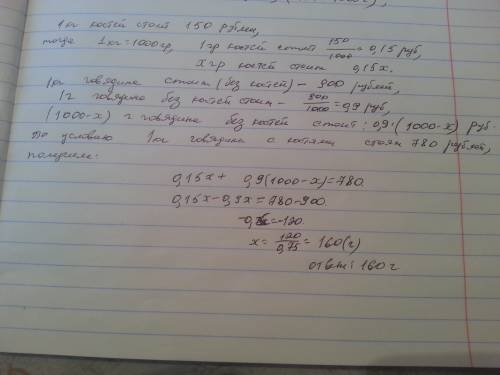 1 кг костей стоит 150 рублей,
тогда 1 кг = 1000 гр, 1 гр костей стоит 150/1000 = 0,15 руб,
x гр костей стоит 0,15x.
1 кг говядина стоит (без костей) - 900 рублей,
1 г говядина без костей стоит - 900/1000 = 0,9 руб,
(1000-x) г говядина без костей стоит: 0,9·(1000-x) руб.
По условию 1 кг говядина с костями стоит 780 рублей,
получим:
0,15x + 0,9(1000-x)=780.
0,15x-0,9x=780-900.
=-120.
x = 120/0,75 = 160(г)
ответ: 160 г